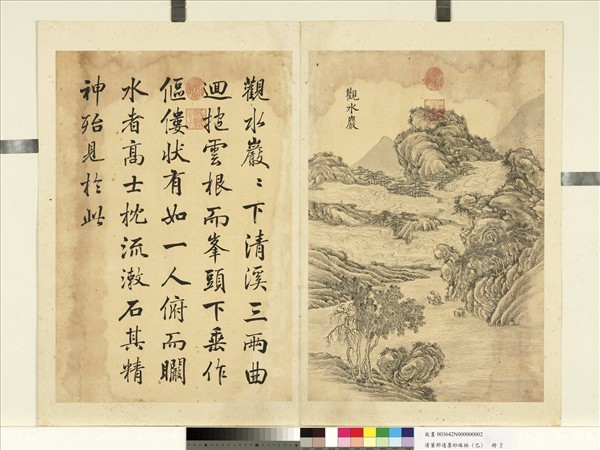 觀水巖
觀水巖〻下清溪三兩曲
迴抱雲根而峯頭下垂作
傴僂狀有如一人俯而矙
水者高士枕流漱石其精
神殆見於此
故畫 003642N000000002
清董邦達墨妙珠林（巳） 冊 2